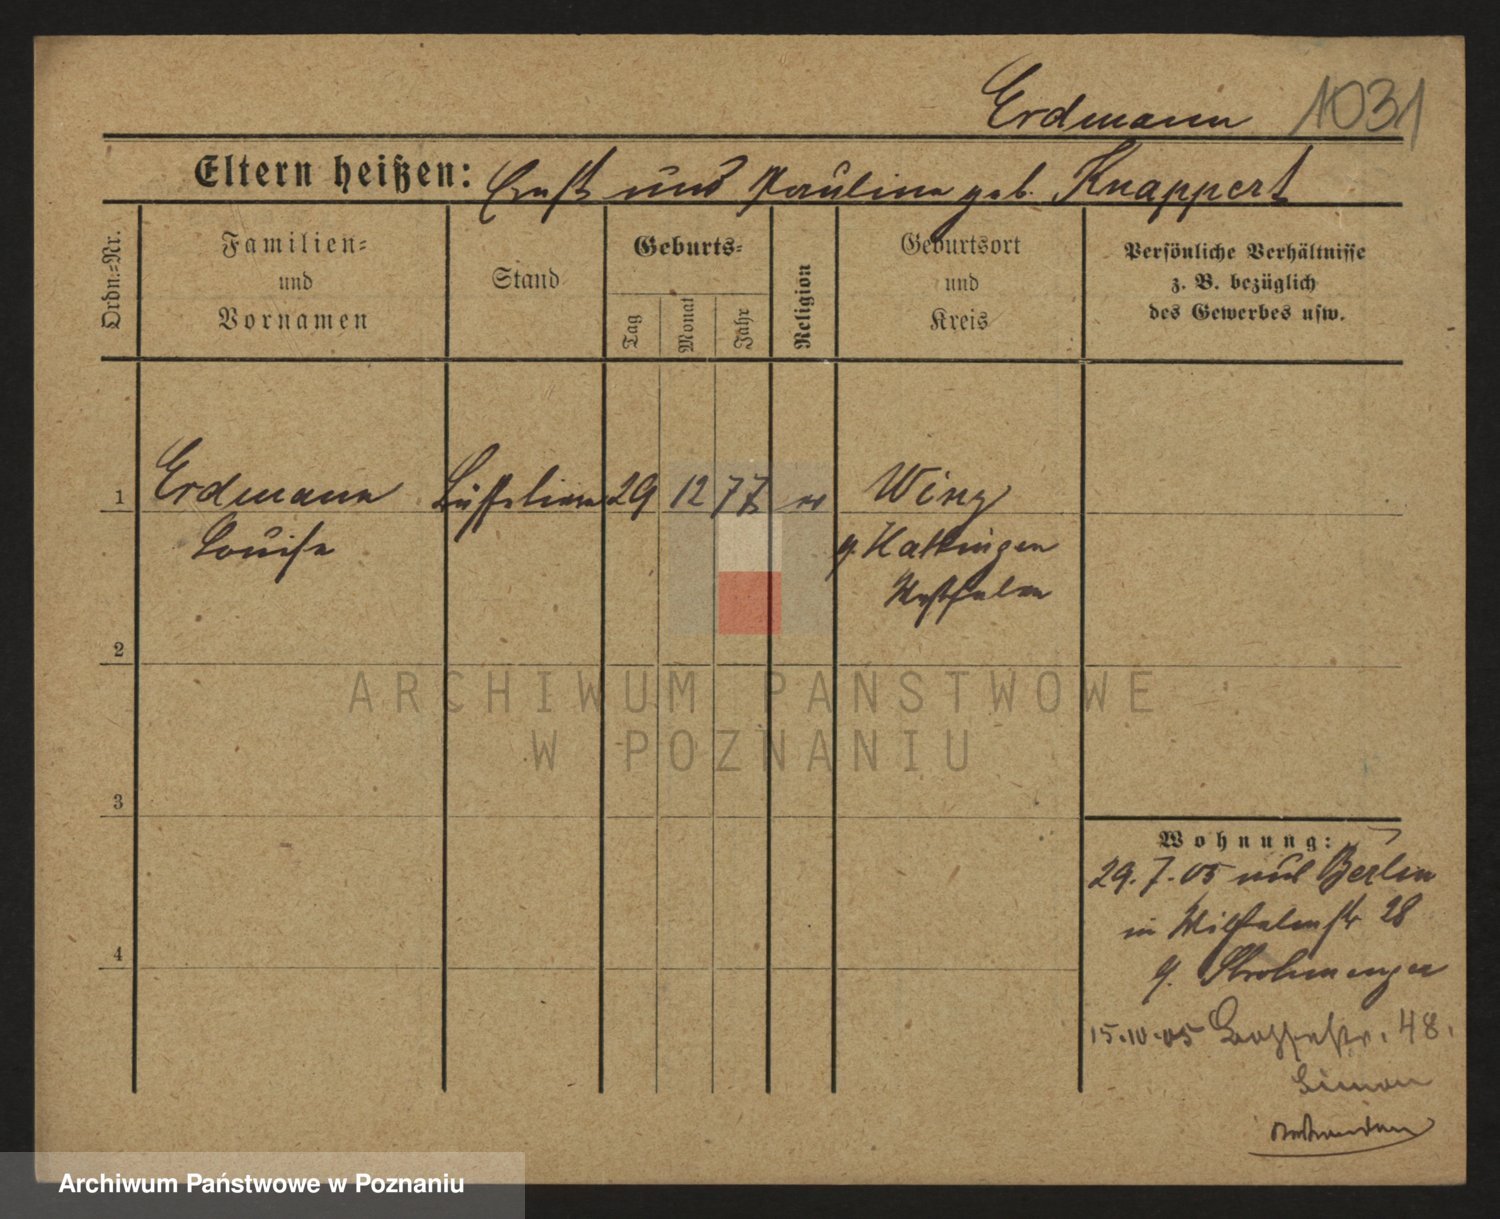 Erdmann 1031
Eltern heißen: Ernst und Pauline geb. Knappert
Ordn.=Nr.
Familien=
und
Vornamen
Stand
Geburts=
Tag
Monat
Jahr
Religion
Geburtsort
und
Kreis
Persönliche Verhältnisse
z. B. bezüglich
des Gewerbes usw.
1 Erdmann 29 12 77
Louise
Hattingen
Westfalen
2
3
4
Wohnung:
29. 7. 05 aus Berlin
in Wilhelmstr 28
Strohmenger
15.10.05 48.
Simon
ARCHIWUM PAŃSTWOWE
W POZNANIU
Archiwum Państwowe w Poznaniu